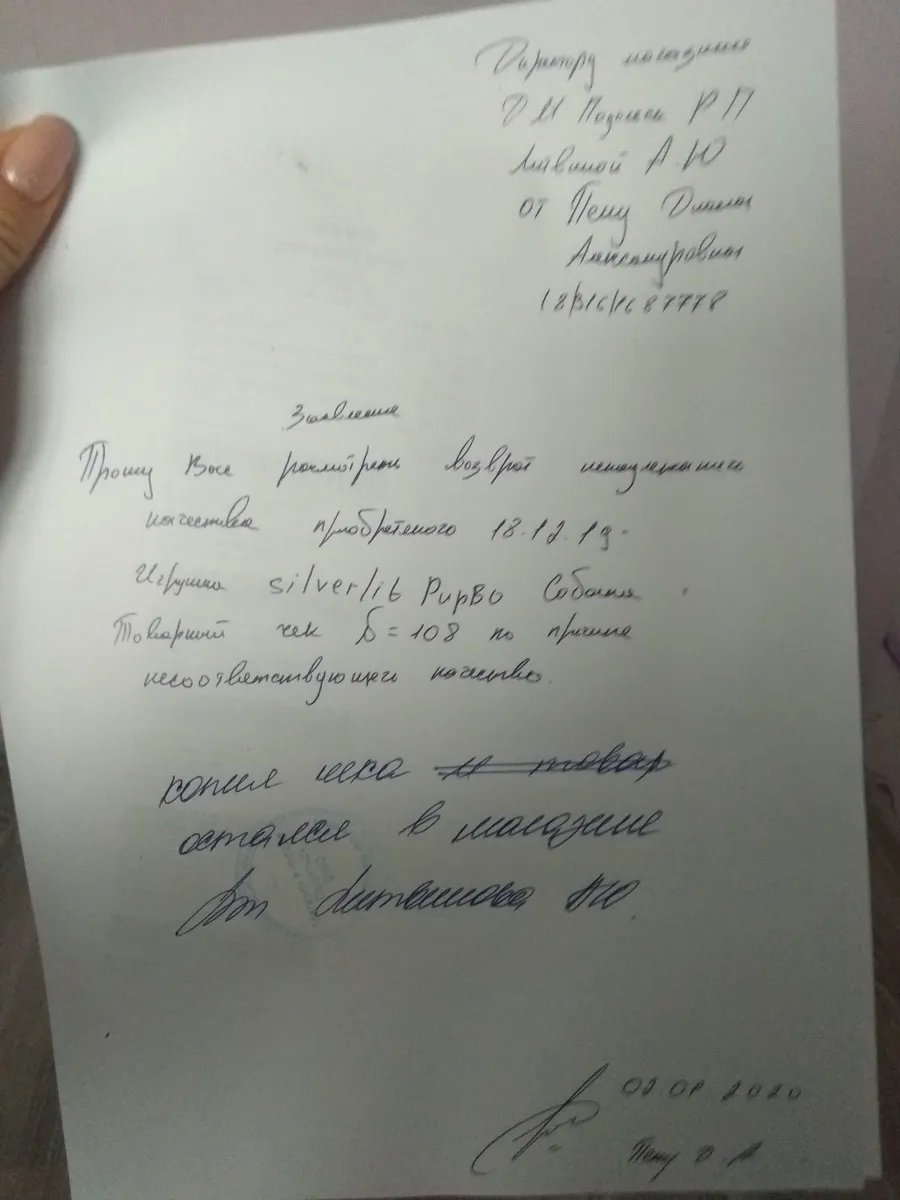 Директору магазина
ДМ Подольск РП
Литвиной А Ю
от Пену Дианы
Александровны
Заявление
Прошу Вас рассмотреть возврат ненадлежащего
качества приобретеного 18.12.19.
Игрушка silverlib PupBo Собака
Товарный чек Б=108 по причине
несоответствующего качества.
копия чека и товар
остался в магазине
Литвинова АЮ
02.01 2020
Пену Д А